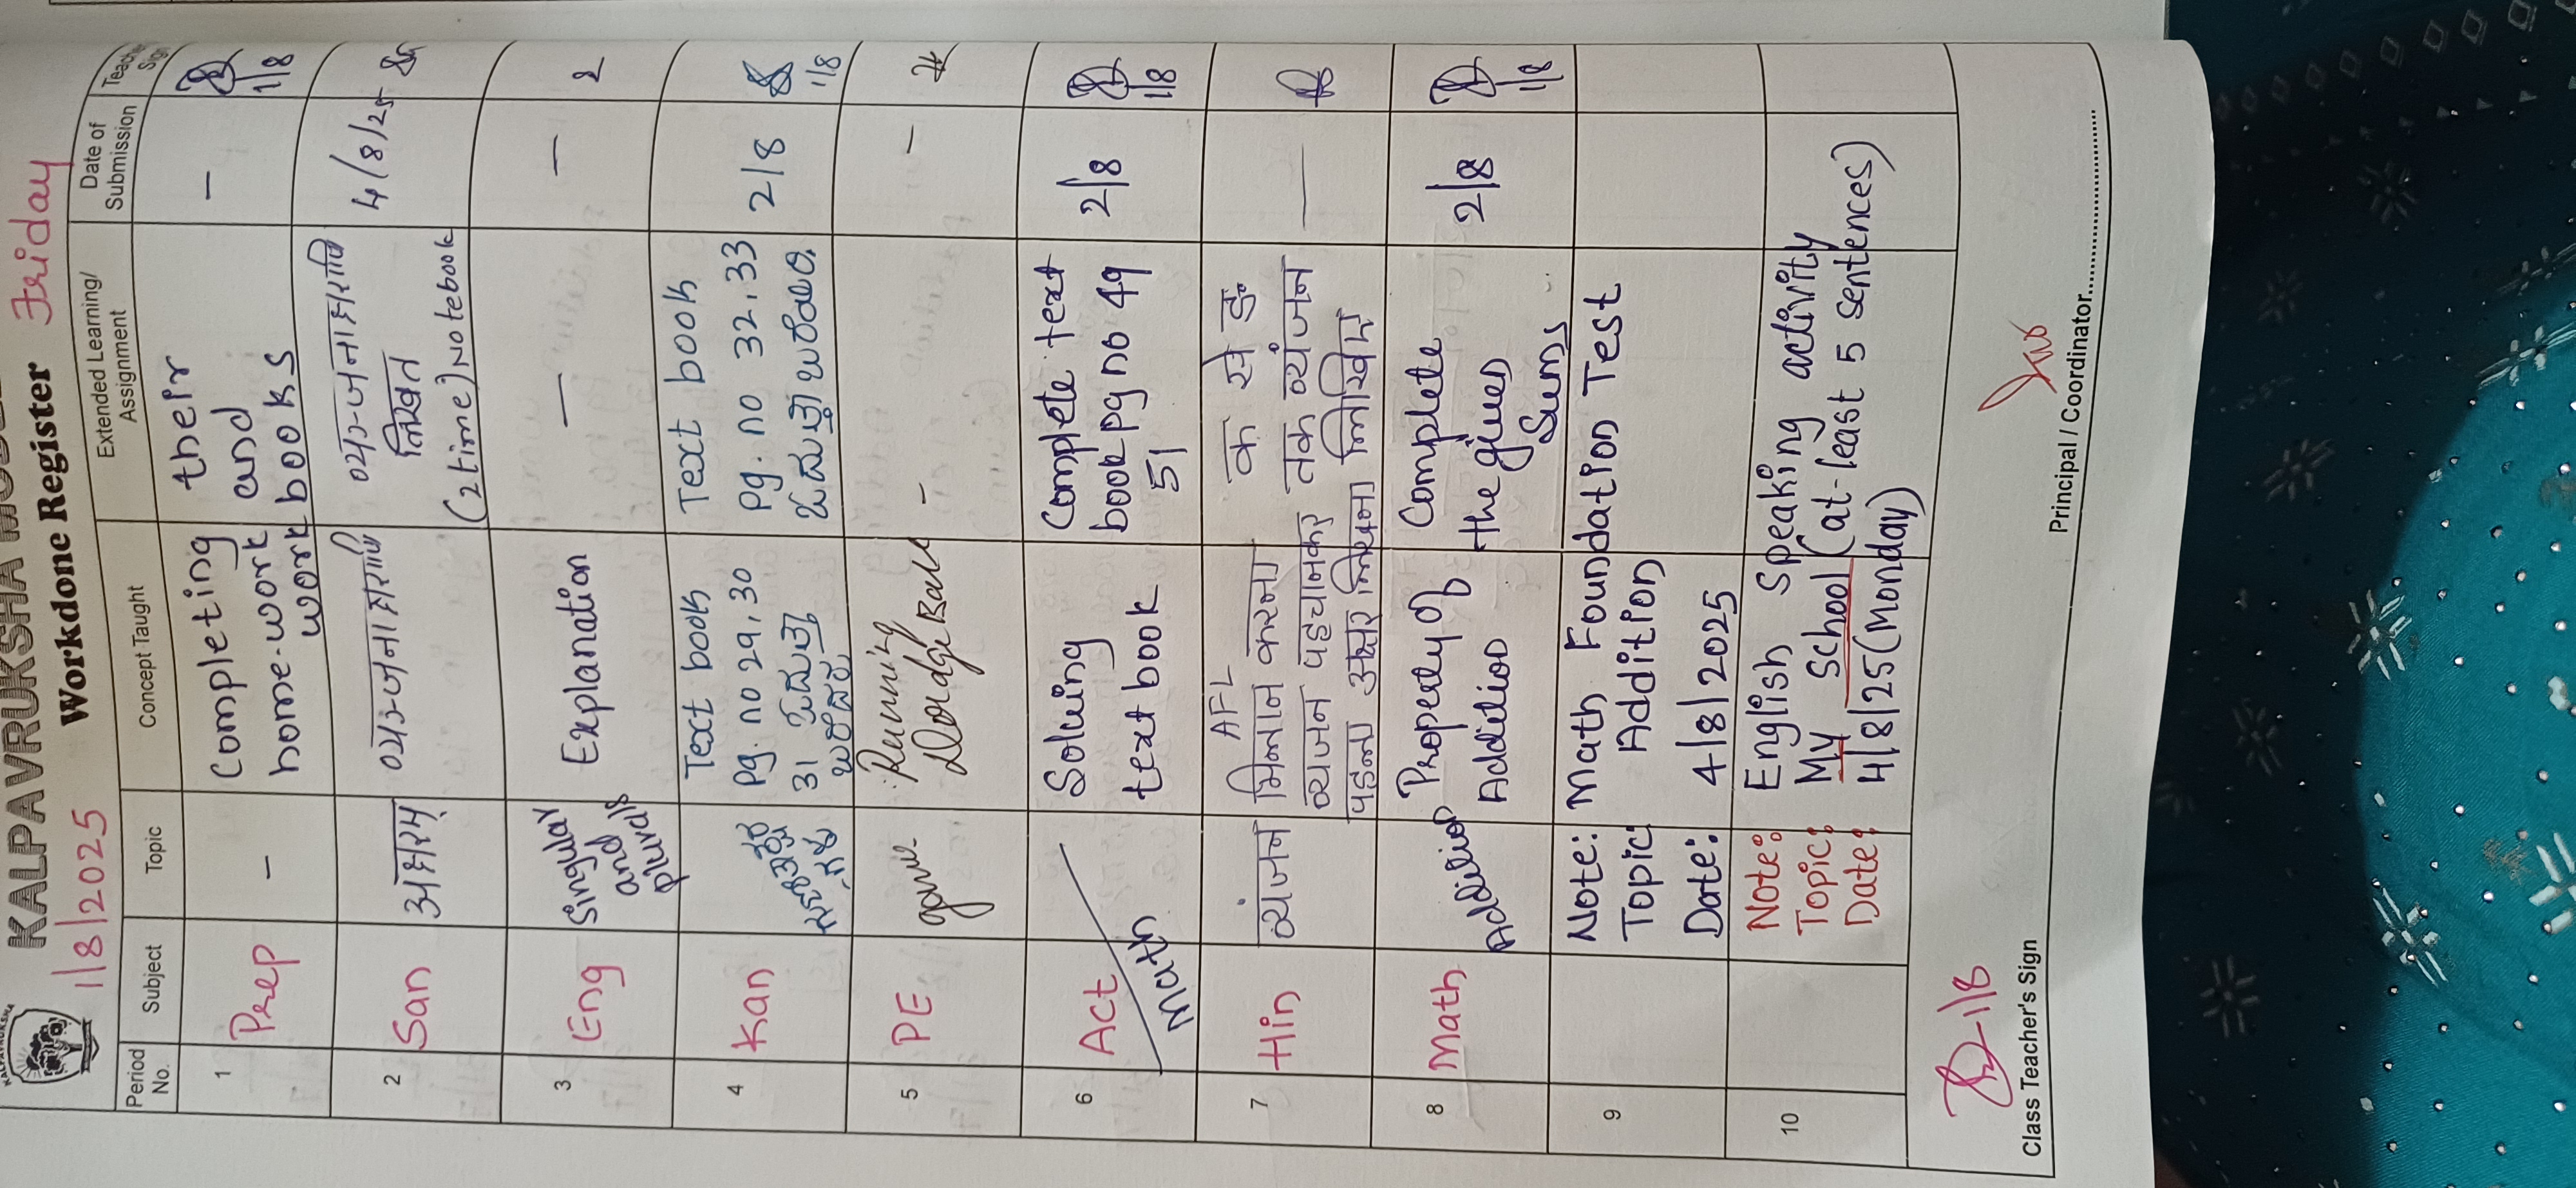 KALPAVRUKSHA
Workdone Register
1/8/2025
Friday
Period No.
Subject
Topic
Concept Taught
Extended Learning/ Assignment
Date of Submission
Teacher Sign
1
Prep
-
Completing their
home-work and
work books
-
1/8
2
San
अक्षरम्
लिखत
(2 time) Notebook
4/8/25
3
Eng
Singular
and
plurals
Explanation
-
-
4
Kan
Text book
Pg. no 29, 30
31
Text book
Pg. no 32, 33
2/8
1/8
5
PE
game
Running
-
-
6
Act
Math
Solving
text book
Complete text
book pg no 49
51
2/8
1/8
7
Hin
व्यंजन
AFL
मिलान करना
व्यंजन पहचानकर
पढ़ना अक्षर लिखना
क से ङ
तक व्यंजन
लिखिए
8
Math
Addition
Property of
Addition
Complete
the given
Sums
2/8
1/8
9
Note: Math Foundation Test
Topic: Addition
Date: 4/8/2025
10
Note: English Speaking activity
Topic: My School (at-least 5 sentences)
Date: 4/8/25 (Monday)
1/8
Class Teacher's Sign
Principal / Coordinator